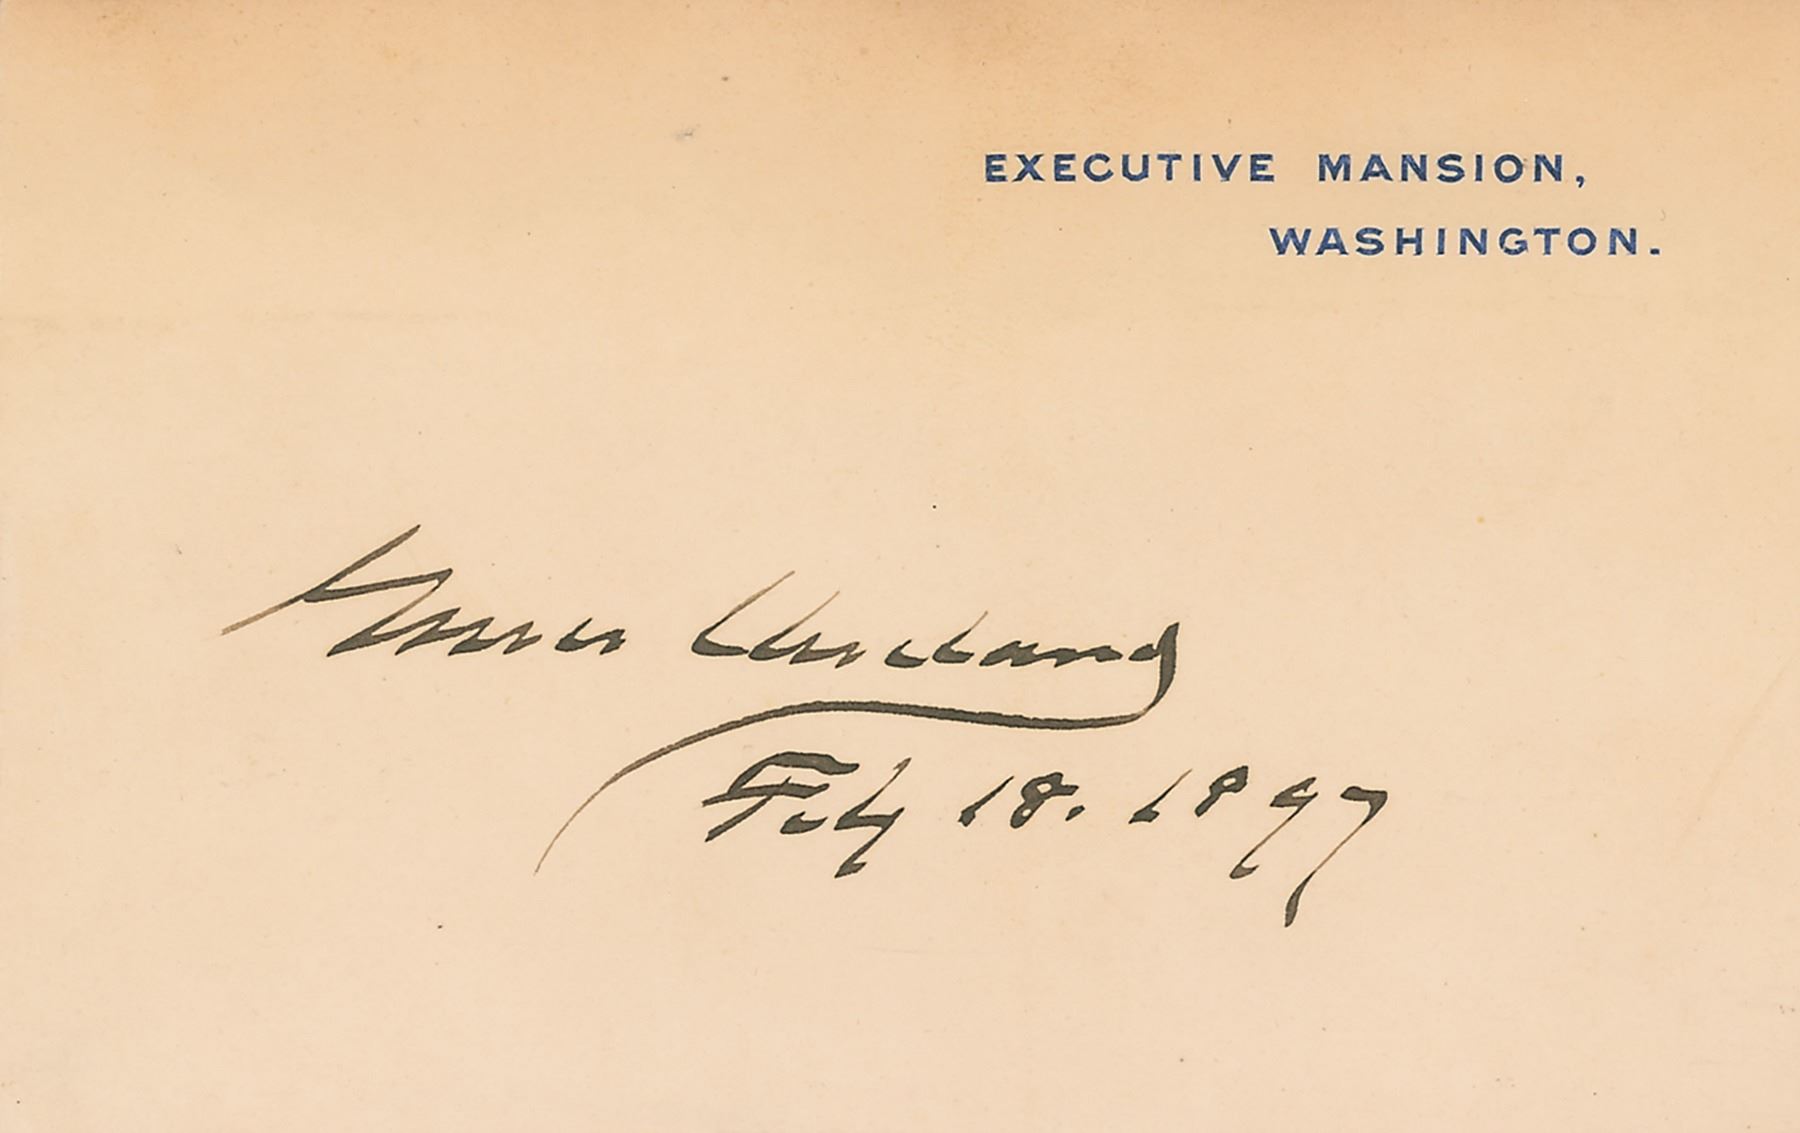 EXECUTIVE MANSION,
WASHINGTON.
Grover Cleveland
Feby 18. 1897